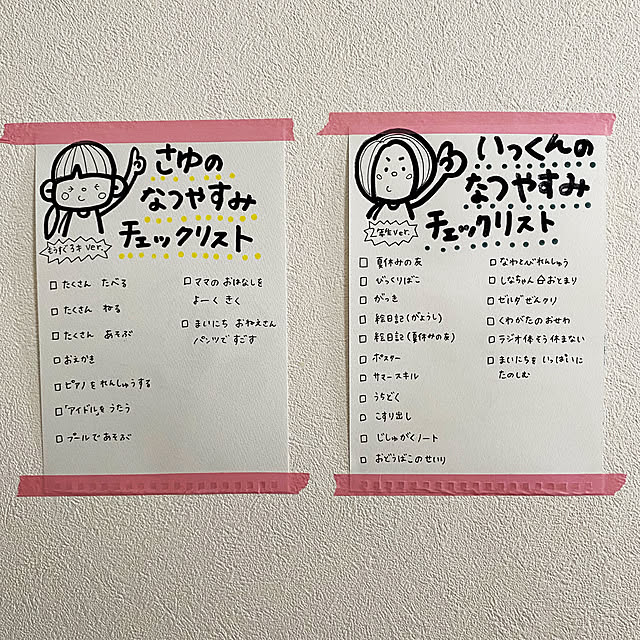 さゆの
なつやすみ
チェックリスト
もうすぐ3才ver.
□ たくさん たべる
□ たくさん ねる
□ たくさん あそぶ
□ おえかき
□ ピアノを れんしゅうする
□「アイドル」を うたう
□ プールで あそぶ
□ ママの おはなしを
よーく きく
□ まいにち おねえさん
パンツで すごす
いっくんの
なつやすみ
チェックリスト
2年生ver.
□ 夏休みの友
□ びっくりばこ
□ がっき
□ 絵日記(がようし)
□ 絵日記(夏休みの友)
□ ポスター
□ サマースキル
□ うちどく
□ こすり出し
□ じしゅがくノート
□ おどうぐばこの せいり
□ なわとびれんしゅう
□ しなちゃん合おとまり
□ ゼルダぜんクリ
□ くわがたの おせわ
□ ラジオ体そう休まない
□ まいにちを いっぱいに
たのしむ